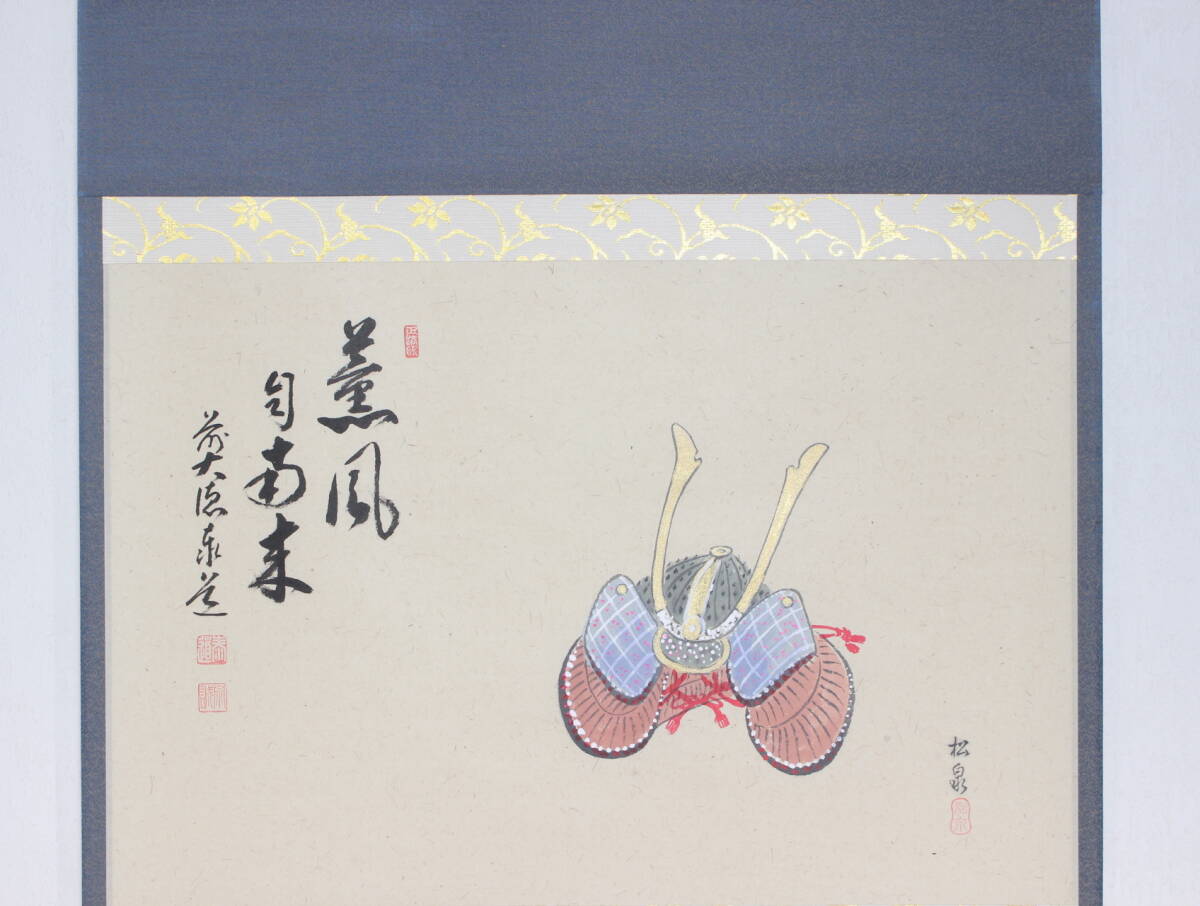 薫風
自南来
前大徳泰道
松泉